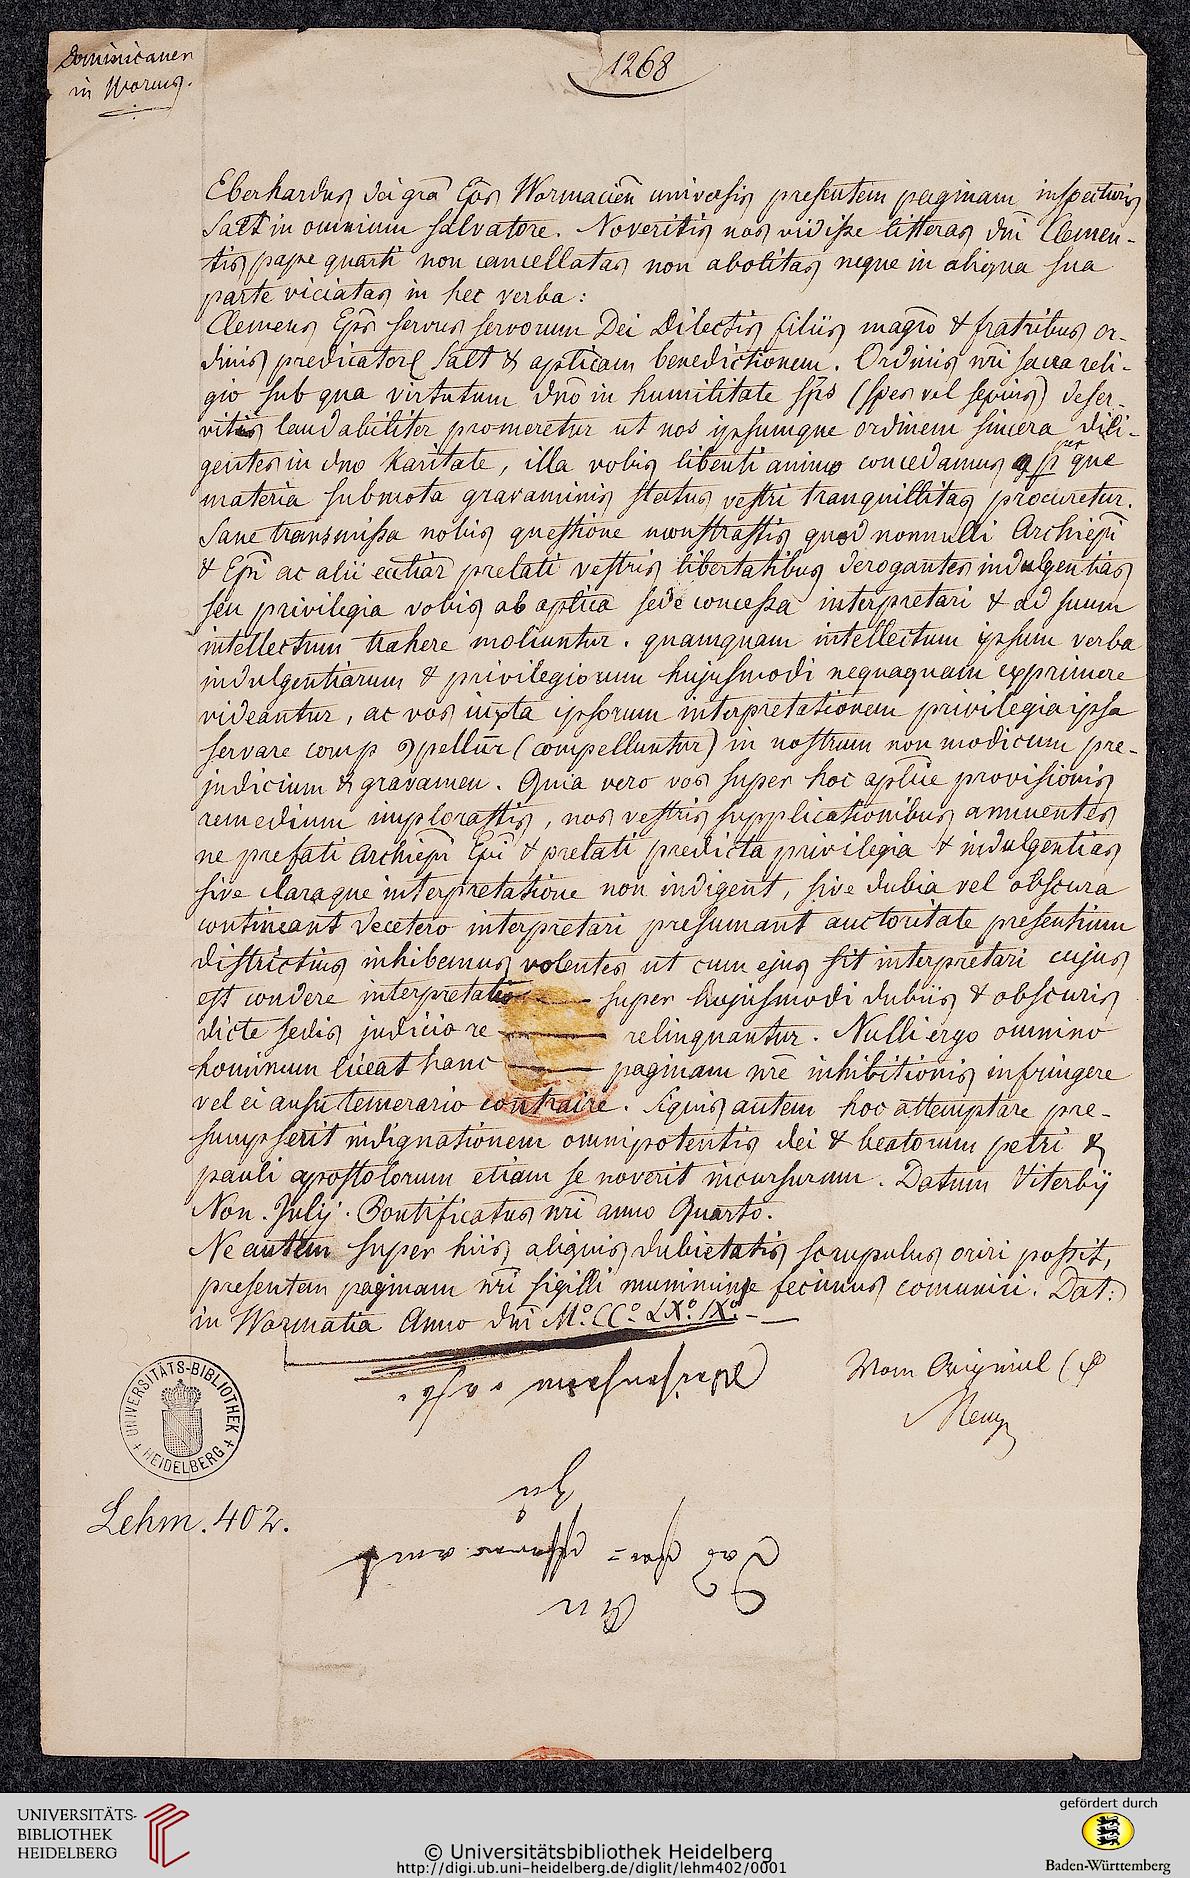 Dominicaner
in Worms.
1268
Eberhardus dei gra Eps Wormacien universis presentem paginam inspecturis
Salt in omnium salvatore. Noveritis nos vidisse litteras dni Clemen-
tis pape quarti non cancellatas non abolitas neque in aliqua sua
parte viciatas in hec verba:
Clemens Eps servus servorum Dei Dilectis filiis magro & fratribus or-
dinis predicator Salt & apticam benedictionem. Ordinis nri sacra reli-
gio sub qua virtutum dno in humilitate sps (spes vel sepius) deser-
vitis laudabiliter promeretur ut nos ipsumque ordinem sincera dili-
gentes in dno karitate, illa vobis libenti animo concedamus per que
materia submota gravaminis status vestri tranquillitas procuretur.
Sane transmissa nobis questione monstrastis quod nonnulli Archiepi
& Epi ac alii ecctiar prelati vestris libertatibus derogantes indulgentias
seu privilegia vobis ab aptica sede concessa interpretari & ad suum
intellectum trahere moliuntur. quamquam intellectum ipsum verba
indulgentiarum & privilegiorum hujusmodi nequaquam exprimere
videantur, ac vos iuxta ipsorum interpretationem privilegia ipsa
servare comp ꝯpellūr (compelluntur) in nostrum non modicum pre-
judicium & gravamen. Quia vero vos super hoc aptice provisionis
remedium implorastis, nos vestris supplicationibus annuentes
ne prefati Archiepi Epi & prelati predicta privilegia & indulgentias
sive claraque interpretatione non indigent, sive dubia vel obscura
contineant decetero interpretari presumant auctoritate presentium
districtius inhibemus volentes ut cum ejus sit interpretari cujus
est condere interpretatio — super hujusmodi dubiis & obscuris
dicte sedis judicio re — relinquantur. Nulli ergo omnino
hominum liceat hanc — paginam nre inhibitionis infringere
vel ei ausu temerario contraire. Siquis autem hoc attemptare pre-
sumpserit indignationem omnipotentis dei & beatorum petri &
pauli apostolorum etiam se noverit incursurum. Datum Viterbij
Non. Julij. Pontificatus nri anno Quarto.
Ne autem super hiis aliquis dubietatis scrupulus oriri possit,
presentem paginam nri sigilli munimine fecimus comuniri. Dat:
in Wormatia Anno dni Mº. CCº. LXº. IXº. —
Vom Original
UNIVERSITÄTS-BIBLIOTHEK
+ HEIDELBERG +
Lehm. 402.
An
zu
UNIVERSITÄTS-
BIBLIOTHEK
HEIDELBERG
© Universitätsbibliothek Heidelberg
http://digi.ub.uni-heidelberg.de/diglit/lehm402/0001
gefördert durch
Baden-Württemberg